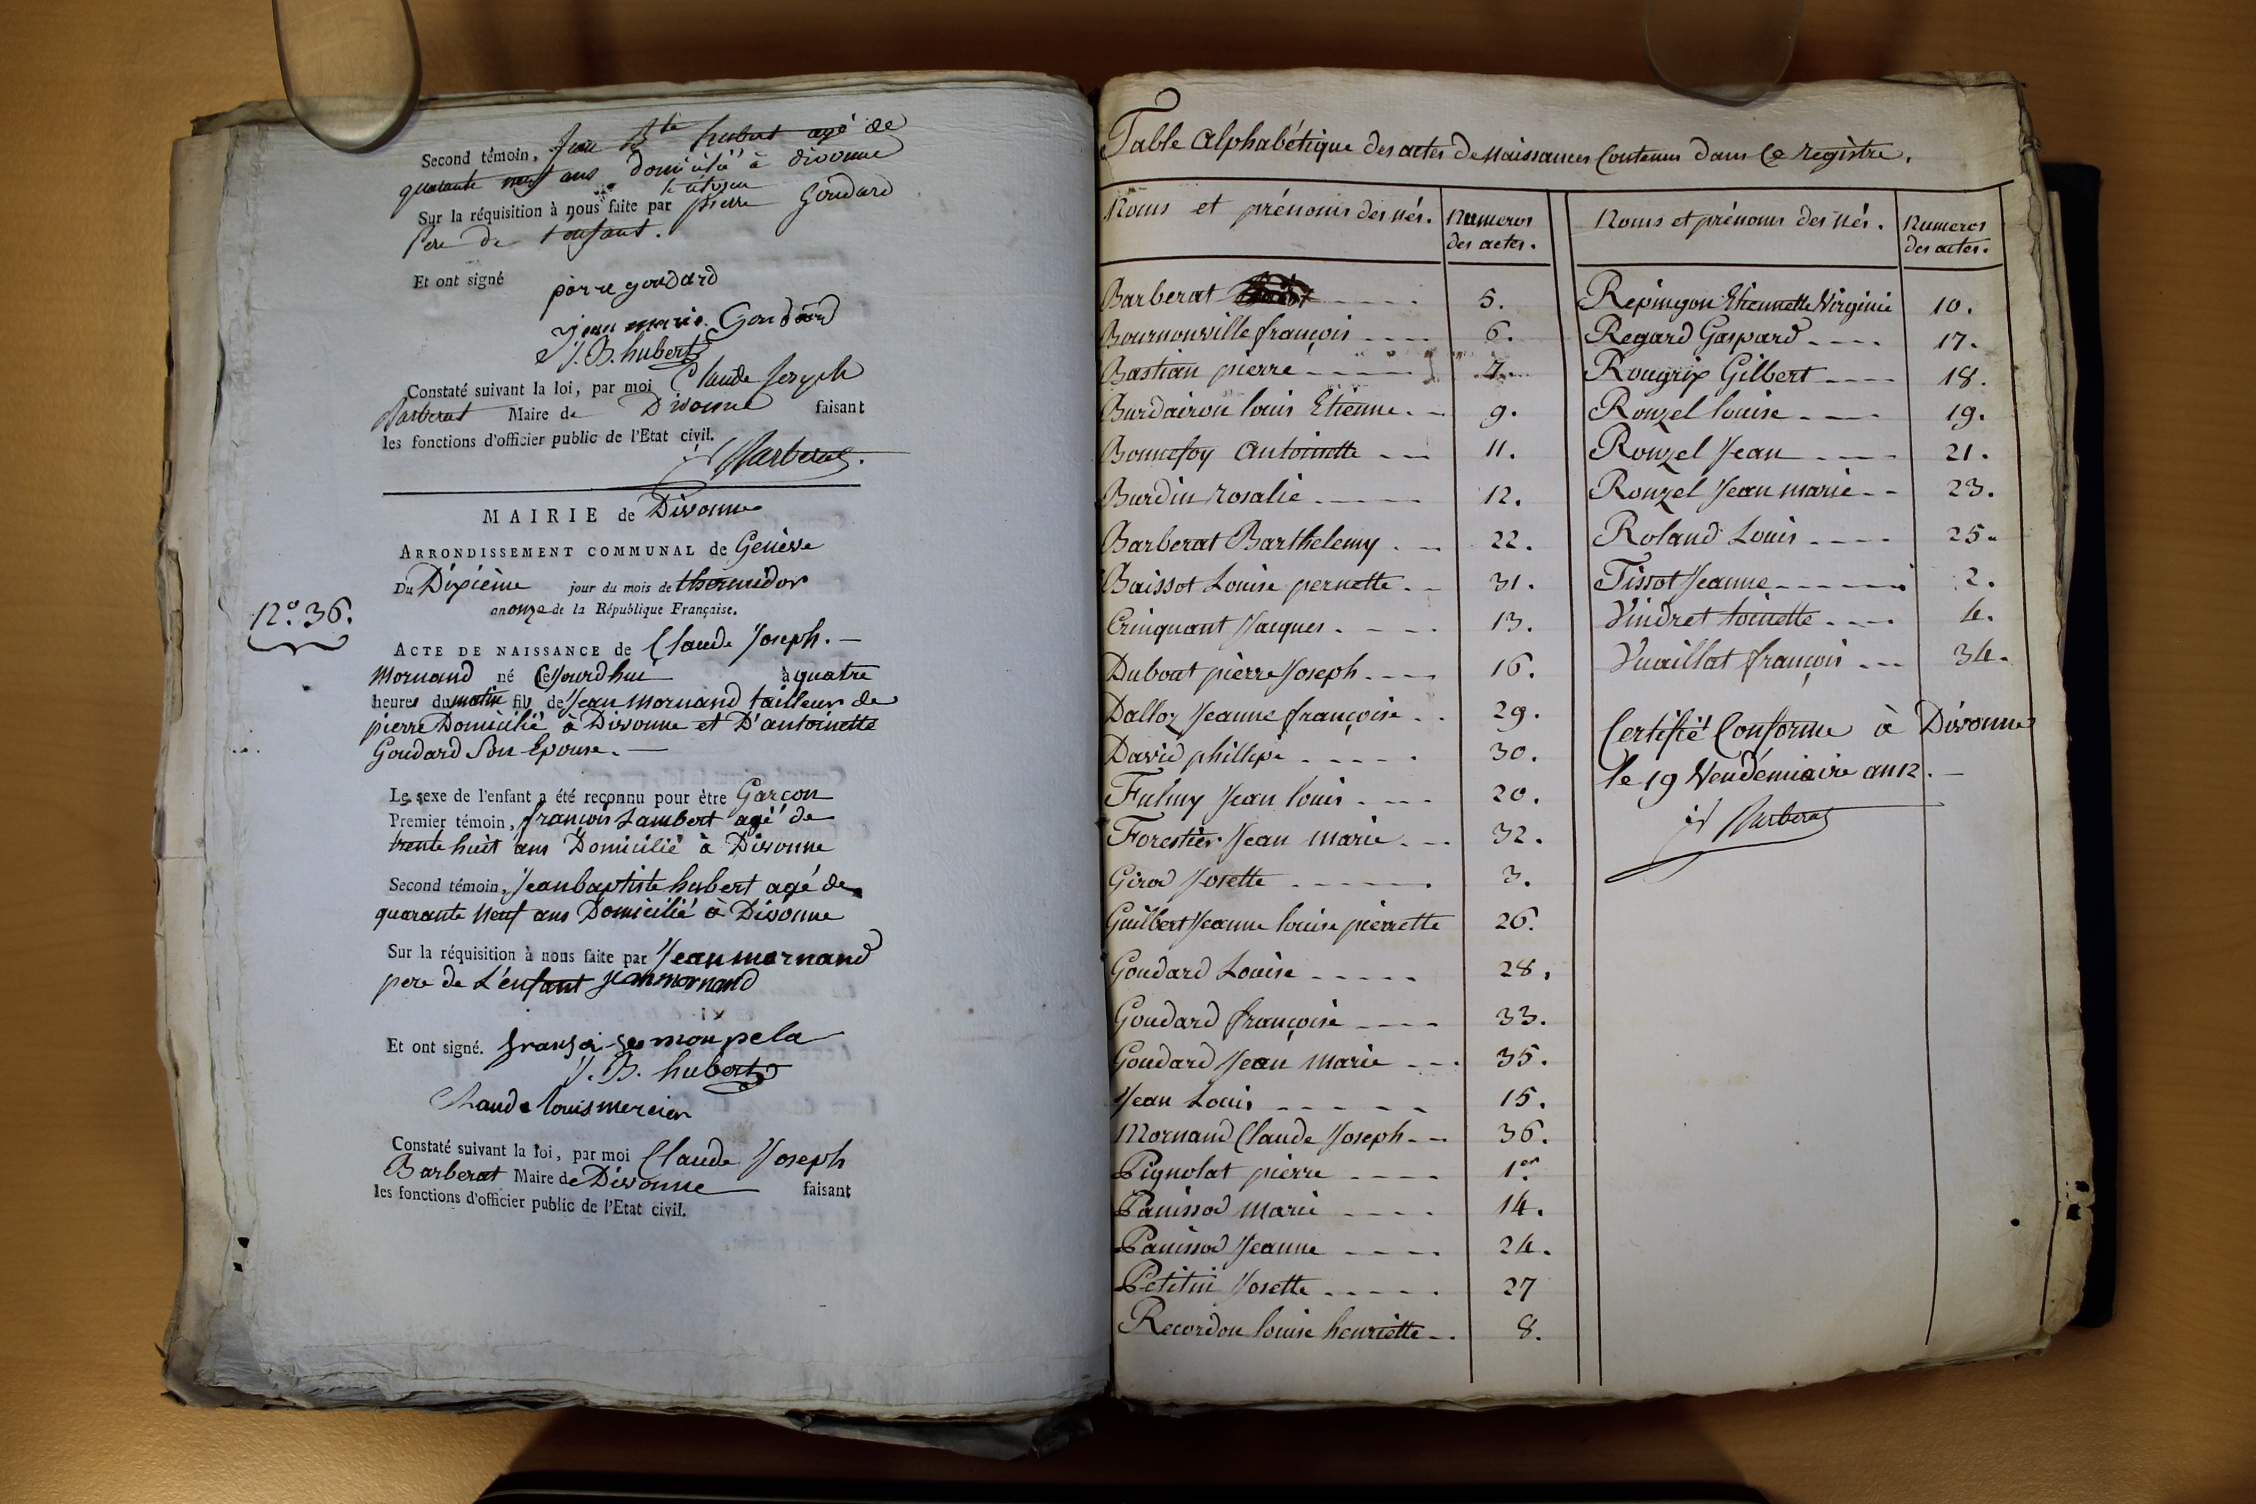 Second témoin, Jean Bte hubert agé de
quarante neuf ans domicilié à divonne
Sur la réquisition à nous faite par pierre Goudard
Pere de l'enfant.
Et ont signé pierre goudard
jean marie Goudard
J. B. hubert
Constaté suivant la loi, par moi Claude Joseph
Barberat Maire de Divonne faisant
les fonctions d'officier public de l'Etat civil.
Barberat.
MAIRIE de Divonne
ARRONDISSEMENT COMMUNAL de Genève
Du Dixième jour du mois de thermidor
an onze de la République Française.
N.° 36.
ACTE DE NAISSANCE de Claude Joseph.
Mornand né Cejourdhui à quatre
heures du matin fils de Jean Mornand tailleur de
pierre Domicilié à Divonne et D'antoinette
Goudard Son Epouse.
Le sexe de l'enfant a été reconnu pour être Garçon
Premier témoin, françois Lambert agé de
trente huit ans Domicilié à Divonne
Second témoin, Jean baptiste hubert agé de
quarante neuf ans Domicilié à Divonne
Sur la réquisition à nous faite par Jean mornand
pere de L'enfant jean mornand
Et ont signé.
J. B. hubert
Claude louis mercier
Constaté suivant la loi, par moi Claude Joseph
Barberat Maire de Divonne faisant
les fonctions d'officier public de l'Etat civil.
Table Alphabétique des actes de Naissances Contenus dans Ce registre.
Noms et prénoms des nés. Numeros des actes.
Barberat 5.
Bournonville françois 6.
Bastian pierre 7.
Burdairon louis Etienne 9.
Bonnefoy Antoinette 11.
Burdin rosalie 12.
Barberat Barthelemy 22.
Baissot Louise pernette 31.
Crinquant Jacques 13.
Dubout pierre Joseph 16.
Dalloz Jeanne françoise 29.
David philippe 30.
Fulmy Jean louis 20.
Forestier Jean marie 32.
Girod Josette 3.
Guilbert Jeanne louise pierrette 26.
Goudard Louise 28.
Goudard françoise 33.
Goudard Jean marie 35.
Jean Louis 15.
Mornand Claude Joseph 36.
Pignolat pierre 1er
Panissod marie 14.
Panissod Jeanne 24.
Petitin Josette 27
Recordon louise henriette 8.
Noms et prénoms des nés. Numeros des actes.
Repingon Etiennette Virginie 10.
Regard Gaspard 17.
Rougrix Gilbert 18.
Ronzel louise 19.
Ronzel Jean 21.
Ronzel Jean marie 23.
Roland Louis 25.
Tissot Jeanne 2.
Vindret toinette 4.
Vuaillat françois 34.
Certifié Conforme à Divonne
le 19 Vendémiaire an 12.
Barberat